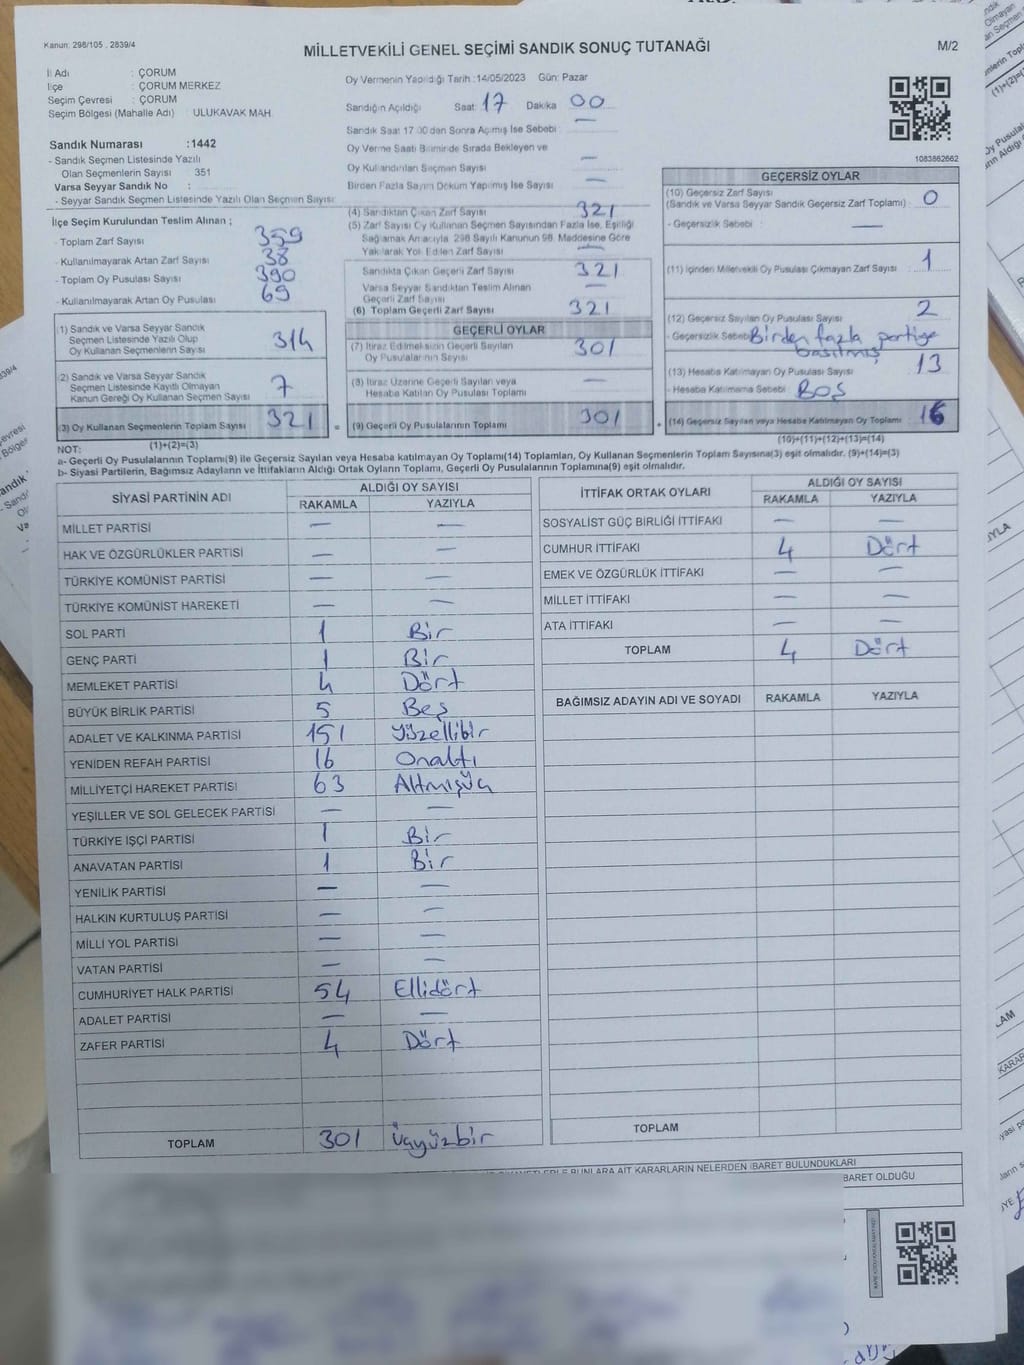 Kanun: 298/105 . 2839/4
MİLLETVEKİLİ GENEL SEÇİMİ SANDIK SONUÇ TUTANAĞI
M/2
İl Adı : ÇORUM
İlçe : ÇORUM MERKEZ
Seçim Çevresi : ÇORUM
Seçim Bölgesi (Mahalle Adı) ULUKAVAK MAH
Sandık Numarası :1442
- Sandık Seçmen Listesinde Yazılı
Olan Seçmenlerin Sayısı 351
Varsa Seyyar Sandık No :
- Seyyar Sandık Seçmen Listesinde Yazılı Olan Seçmen Sayısı
Oy Vermenin Yapıldığı Tarih :14/05/2023 Gün: Pazar
Sandığın Açıldığı Saat: 17 Dakika 00
Sandık Saat 17.00'dan Sonra Açılmış İse Sebebi : —
Oy Verme Saati Bitiminde Sırada Bekleyen ve
Oy Kullandırılan Seçmen Sayısı —
Birden Fazla Sayım Döküm Yapılmış İse Sayısı —
1083862662
İlçe Seçim Kurulundan Teslim Alınan ;
- Toplam Zarf Sayısı 359
- Kullanılmayarak Artan Zarf Sayısı 38
- Toplam Oy Pusulası Sayısı 390
- Kullanılmayarak Artan Oy Pusulası 69
(1) Sandık ve Varsa Seyyar Sandık
Seçmen Listesinde Yazılı Olup
Oy Kullanan Seçmenlerin Sayısı 314
(2) Sandık ve Varsa Seyyar Sandık
Seçmen Listesinde Kayıtlı Olmayan
Kanun Gereği Oy Kullanan Seçmen Sayısı 7
(3) Oy Kullanan Seçmenlerin Toplam Sayısı 321
(1)+(2)=(3)
(4) Sandıktan Çıkan Zarf Sayısı 321
(5) Zarf Sayısı Oy Kullanan Seçmen Sayısından Fazla İse, Eşitliği
Sağlamak Amacıyla 298 Sayılı Kanunun 98. Maddesine Göre
Yakılarak Yok Edilen Zarf Sayısı —
Sandıkta Çıkan Geçerli Zarf Sayısı 321
Varsa Seyyar Sandıktan Teslim Alınan
Geçerli Zarf Sayısı —
(6) Toplam Geçerli Zarf Sayısı 321
GEÇERLİ OYLAR
(7) İtiraz Edilmeksizin Geçerli Sayılan
Oy Pusulalarının Sayısı 301
(8) İtiraz Üzerine Geçerli Sayılan veya
Hesaba Katılan Oy Pusulaları Toplamı —
= (9) Geçerli Oy Pusulalarının Toplamı 301
GEÇERSİZ OYLAR
(10) Geçersiz Zarf Sayısı
(Sandık ve Varsa Seyyar Sandık Geçersiz Zarf Toplamı) : 0
- Geçersizlik Sebebi : —
(11) İçinden Milletvekili Oy Pusulası Çıkmayan Zarf Sayısı : 1
(12) Geçersiz Sayılan Oy Pusulası Sayısı : 2
- Geçersizlik Sebebi: Birden fazla partiye
basılmış
(13) Hesaba Katılmayan Oy Pusulası Sayısı : 13
- Hesaba Katılmama Sebebi : BOŞ
+ (14) Geçersiz Sayılan veya Hesaba Katılmayan Oy Toplamı 16
(10)+(11)+(12)+(13)=(14)
NOT:
a- Geçerli Oy Pusulalarının Toplamı(9) ile Geçersiz Sayılan veya Hesaba katılmayan Oy Toplamı(14) Toplamları, Oy Kullanan Seçmenlerin Toplam Sayısına(3) eşit olmalıdır. (9)+(14)=(3)
b- Siyasi Partilerin, Bağımsız Adayların ve İttifakların Aldığı Ortak Oyların Toplamı, Geçerli Oy Pusulalarının Toplamına(9) eşit olmalıdır.
SİYASİ PARTİNİN ADI ALDIĞI OY SAYISI
RAKAMLA YAZIYLA
MİLLET PARTİSİ — —
HAK VE ÖZGÜRLÜKLER PARTİSİ — —
TÜRKİYE KOMÜNİST PARTİSİ — —
TÜRKİYE KOMÜNİST HAREKETİ — —
SOL PARTİ 1 Bir
GENÇ PARTİ 1 Bir
MEMLEKET PARTİSİ 4 Dört
BÜYÜK BİRLİK PARTİSİ 5 Beş
ADALET VE KALKINMA PARTİSİ 151 Yüzellibir
YENİDEN REFAH PARTİSİ 16 Onaltı
MİLLİYETÇİ HAREKET PARTİSİ 63 Altmışüç
YEŞİLLER VE SOL GELECEK PARTİSİ — —
TÜRKİYE İŞÇİ PARTİSİ 1 Bir
ANAVATAN PARTİSİ 1 Bir
YENİLİK PARTİSİ — —
HALKIN KURTULUŞ PARTİSİ — —
MİLLİ YOL PARTİSİ — —
VATAN PARTİSİ — —
CUMHURİYET HALK PARTİSİ 54 Ellidört
ADALET PARTİSİ — —
ZAFER PARTİSİ 4 Dört
TOPLAM 301 Üçyüzbir
İTTİFAK ORTAK OYLARI ALDIĞI OY SAYISI
RAKAMLA YAZIYLA
SOSYALİST GÜÇ BİRLİĞİ İTTİFAKI — —
CUMHUR İTTİFAKI 4 Dört
EMEK VE ÖZGÜRLÜK İTTİFAKI — —
MİLLET İTTİFAKI — —
ATA İTTİFAKI — —
TOPLAM 4 Dört
BAĞIMSIZ ADAYIN ADI VE SOYADI RAKAMLA YAZIYLA
TOPLAM
BUNLARA AİT KARARLARIN NELERDEN İBARET BULUNDUKLARI
BARET OLDUĞU